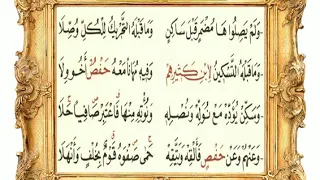 وَلَمْ يَصِلُوا هَا مُضْمَرٍ قَبْلَ سَاكِنٍ وَمَا قَبْلَهُ التَّحْرِيكُ لِلْكُلِّ وُصِّلَا
وَمَا قَبْلَهُ التَّسْكِينُ لِابْنِ كَثِيرِهِمْ وَفِيهِ مُهَانًا مَعْهُ حَفْصٌ أَخُو وِلَا
وَسَكِّنْ يُؤَدِّهْ مَعْ نُوَلِّهْ وَنُصْلِهِ وَنُؤْتِهِ مِنْهَا فَاعْتَبِرْ صَافِيًا حَلَا
وَعَنْهُمْ وَعَنْ حَفْصٍ فَأَلْقِهْ وَيَتَّقِهْ حَمَى صَفْوَهُ قَوْمٌ بِخُلْفٍ وَأَنْهَلَا